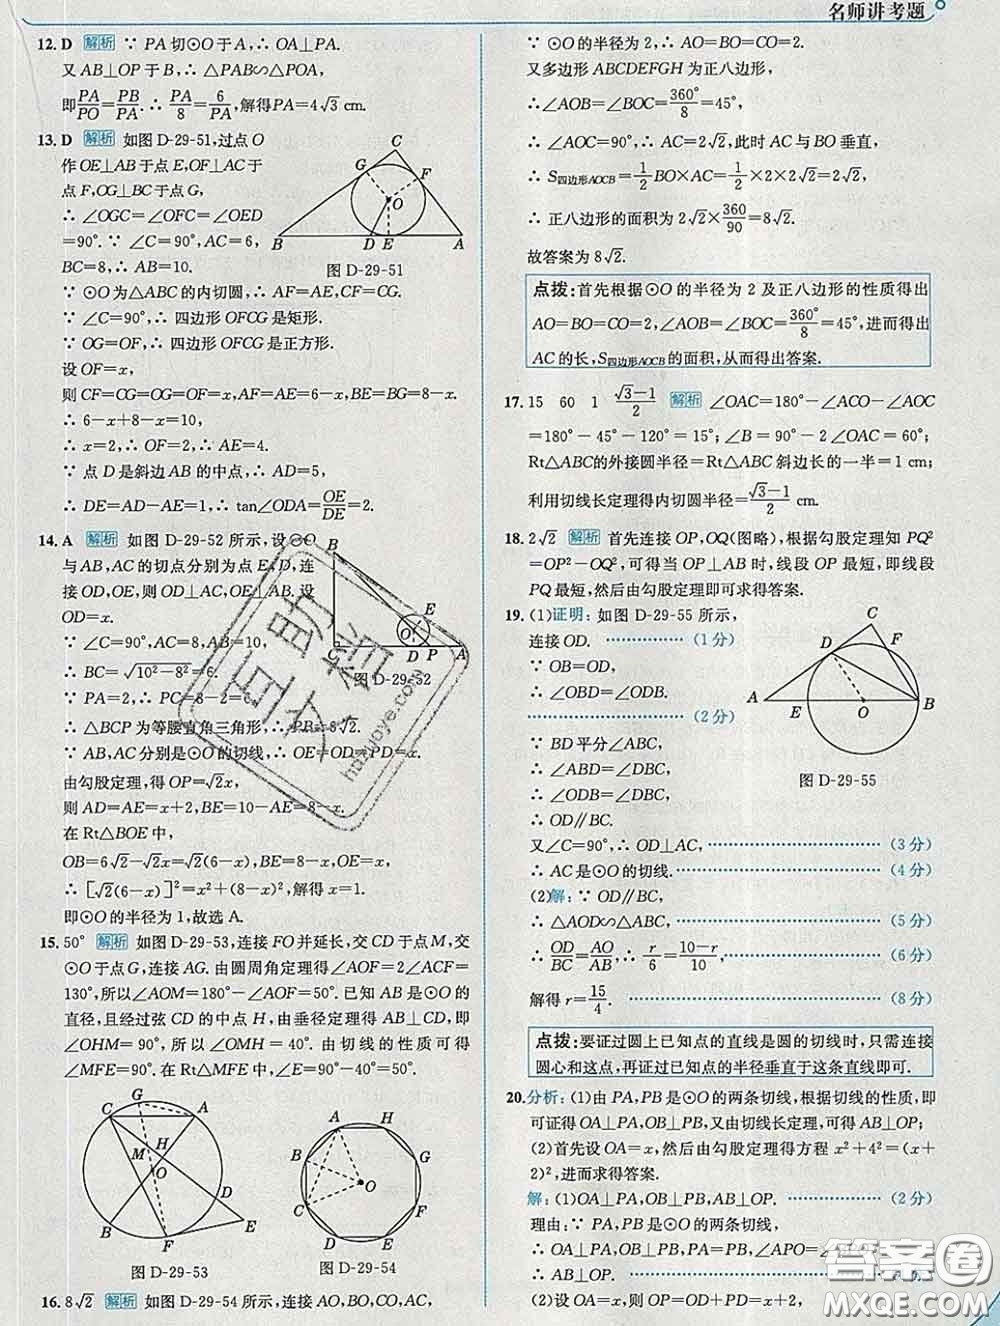 名师讲考题
12. D 解析 ∵ PA切⊙O于A,∴ OA⊥PA.
又AB⊥OP于B,∴ △PAB∽△POA,
即PA/PO=PB/PA.∴ PA/8=6/PA,解得PA=4√3 cm.
13. D 解析 如图D-29-51,过点O
作OE⊥AB于点E,OF⊥AC于
点F,OG⊥BC于点G,
∴ ∠OGC=∠OFC=∠OED
=90°.∵ ∠C=90°,AC=6,
BC=8,∴ AB=10.
C
G
F
O
B
D
E
A
图D-29-51
∵ ⊙O为△ABC的内切圆,∴ AF=AE,CF=CG.
∵ ∠C=90°,∴ 四边形OFCG是矩形.
∵ OG=OF,∴ 四边形OFCG是正方形.
设OF=x,
则CF=CG=OG=OF=x,AF=AE=6-x,BE=BG=8-x.
∴ 6-x+8-x=10,
∴ x=2,∴ OF=2,∴ AE=4.
∵ 点D是斜边AB的中点,∴ AD=5,
∴ DE=AD-AE=1,∴ tan∠ODA=OE/DE=2.
14. A 解析 如图D-29-52所示,设⊙O
与AB,AC的切点分别为点E,D,连
接OD,OE,则OD⊥AC,OE⊥AB.设
OD=x.
∵ ∠C=90°,AC=8,AB=10,
∴ BC=√(10²-8²)=6.
∵ PA=2,∴ PC=8-2=6.
B
E
O
C
D
P
A
图D-29-52
∴ △BCP为等腰直角三角形,∴ PB=6√2.
∵ AB,AC分别是⊙O的切线,∴ OE=OD=PD=x.
由勾股定理,得OP=√2x,
则AD=AE=x+2,BE=10-AE=8-x.
在Rt△BOE中,
OB=6√2-√2x=√2(6-x),BE=8-x,
∴ [√2(6-x)]²=x²+(8-x)²,解得x=1.
即⊙O的半径为1,故选A.
15. 50° 解析 如图D-29-53,连接FO并延长,交CD于点M,交
⊙O于点G,连接AG.由圆周角定理得∠AOF=2∠ACF=
130°,所以∠AOM=180°-∠AOF=50°.已知AB是⊙O的
直径,且经过弦CD的中点H,由垂径定理得OH⊥CD,即
∠OHM=90°,所以∠OMH=40°.由切线的性质可得
∠MFE=90°.在Rt△MFE中,∠E=90°-∠OMH=50°.
G
C
A
H
M
O
D
B
E
F
图D-29-53
A
H
B
G
O
C
F
D
E
图D-29-54
16. 8√2 解析 如图D-29-54所示,连接AO,BO,CO,AC,
∵ ⊙O的半径为2,∴ AO=BO=CO=2.
又多边形ABCDEFGH为正八边形,
∴ ∠AOB=∠BOC=360°/8=45°,
∴ ∠AOC=90°,∴ AC=2√2,此时AC与BO垂直,
∴ S四边形AOCB=1/2BO×AC=1/2×2×2√2=2√2,
∴ 正八边形的面积为2√2×360/90=8√2.
故答案为8√2.
点拨:首先根据⊙O的半径为2及正八边形的性质得出
AO=BO=CO=2,∠AOB=∠BOC=360°/8=45°,进而得出
AC的长,S四边形AOCB的面积,从而得出答案.
17. 15 60 1 (√3-1)/2 解析 ∠OAC=180°-∠ACO-∠AOC
=180°-45°-120°=15°;∠B=90°-2∠OAC=60°;
Rt△ABC的外接圆半径=Rt△ABC斜边长的一半=1 cm;
利用切线长定理得内切圆半径=(√3-1)/2 cm.
18. 2√2 解析 首先连接OP,OQ(图略),根据勾股定理知PQ²
=OP²-OQ²,可得当OP⊥AB时,线段OP最短,即线段
PQ最短,然后由勾股定理即可求得答案.
19. (1)证明:如图D-29-55所示,
连接OD. (1分)
∵ OB=OD,
∴ ∠OBD=∠ODB.
(2分)
∵ BD平分∠ABC,
∴ ∠ABD=∠DBC,
∴ ∠ODB=∠DBC,
∴ OD∥BC.
C
D
F
A
E
O
B
图D-29-55
又∠C=90°,∴ OD⊥AC, (3分)
∴ AC是⊙O的切线. (4分)
(2)解:∵ OD∥BC,
∴ △AOD∽△ABC, (5分)
∴ OD/BC=AO/AB,∴ r/6=(10-r)/10, (6分)
解得r=15/4. (8分)
点拨:要证过圆上已知点的直线是圆的切线时,只需连接
圆心和这点,再证过已知点的半径垂直于这条直线即可.
20. 分析:(1)由PA,PB是⊙O的两条切线,根据切线的性质,即
可证得OA⊥PA,OB⊥PB,又由切线长定理,可得AB⊥OP;
(2)首先设OA=x,然后由勾股定理得方程x²+4²=(x+
2)²,进而求得答案.
解:(1)OA⊥PA,OB⊥PB,AB⊥OP. (2分)
理由:∵ PA,PB是⊙O的两条切线,
∴ OA⊥PA,OB⊥PB,PA=PB,∠APO=∠BPO,
∴ AB⊥OP.
(2)设OA=x,∵ PA,PB是
互助文档
hdzuoye.com
答案圈
MXQE.COM